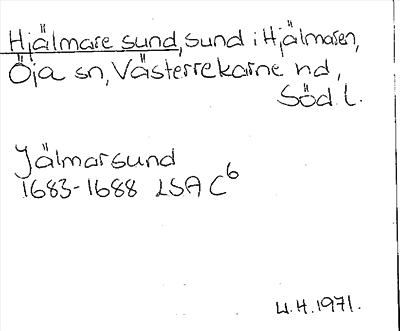 Hjälmare sund, sund i Hjälmaren,
Öja sn, Västerrekarne hd,
Söd. l.
Jälmarsund
1683-1688 LSA C6
4.4.1971.